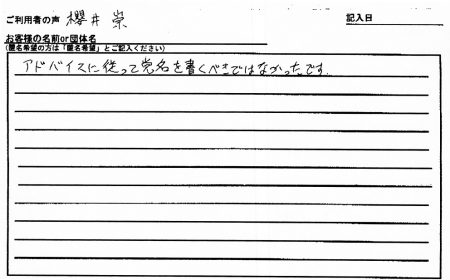 ご利用者の声 櫻井 崇
記入日
お客様の名前or団体名
(匿名希望の方は「匿名希望」とご記入ください)
アドバイスに従って党名を書くべきではなかったです.